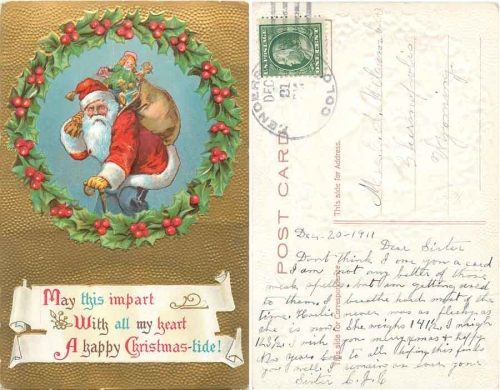 May this impart
With all my heart
A happy Christmas-tide!
U.S. POSTAGE
ONE CENT
DEC
21
COLO.
POST CARD
This side for Address.
This side for Correspondence.
Wyoming
Dec. 20 - 1911
Dear Sister
Don't think I owe you a card
I am not any better of those
weak spells but am getting used
to them. I breathe hard most of the
time. never was as fleshy as
she is now She weighs 141 1/2, I weigh
I wish you merry xmas & happy
New years love to all hoping this finds
you well. I remain as ever your
Sister